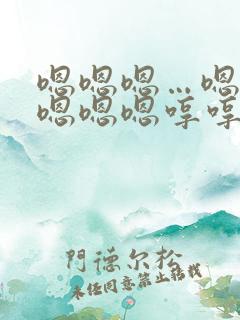 嗯嗯嗯…嗯
嗯嗯嗯哼哼
門德尔松
未经同意禁止转载